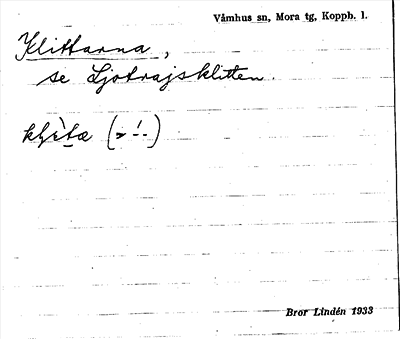 Våmhus sn, Mora tg, Koppb. l.
Klittarna,
se Ljotrajsklitten.
Bror Lindén 1933